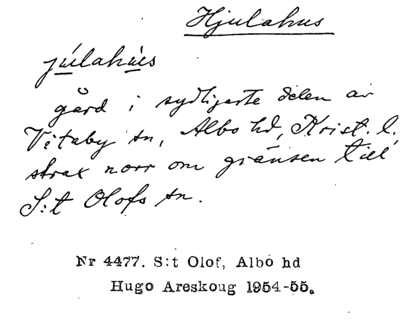 Hjulahus
júlahús
gård i sydligaste delen av
Vitaby sn, Albo hd, Krist. l.
strax norr om gränsen till
S:t Olofs sn.
Nr 4477. S:t Olof, Albo hd
Hugo Areskoug 1954-55.